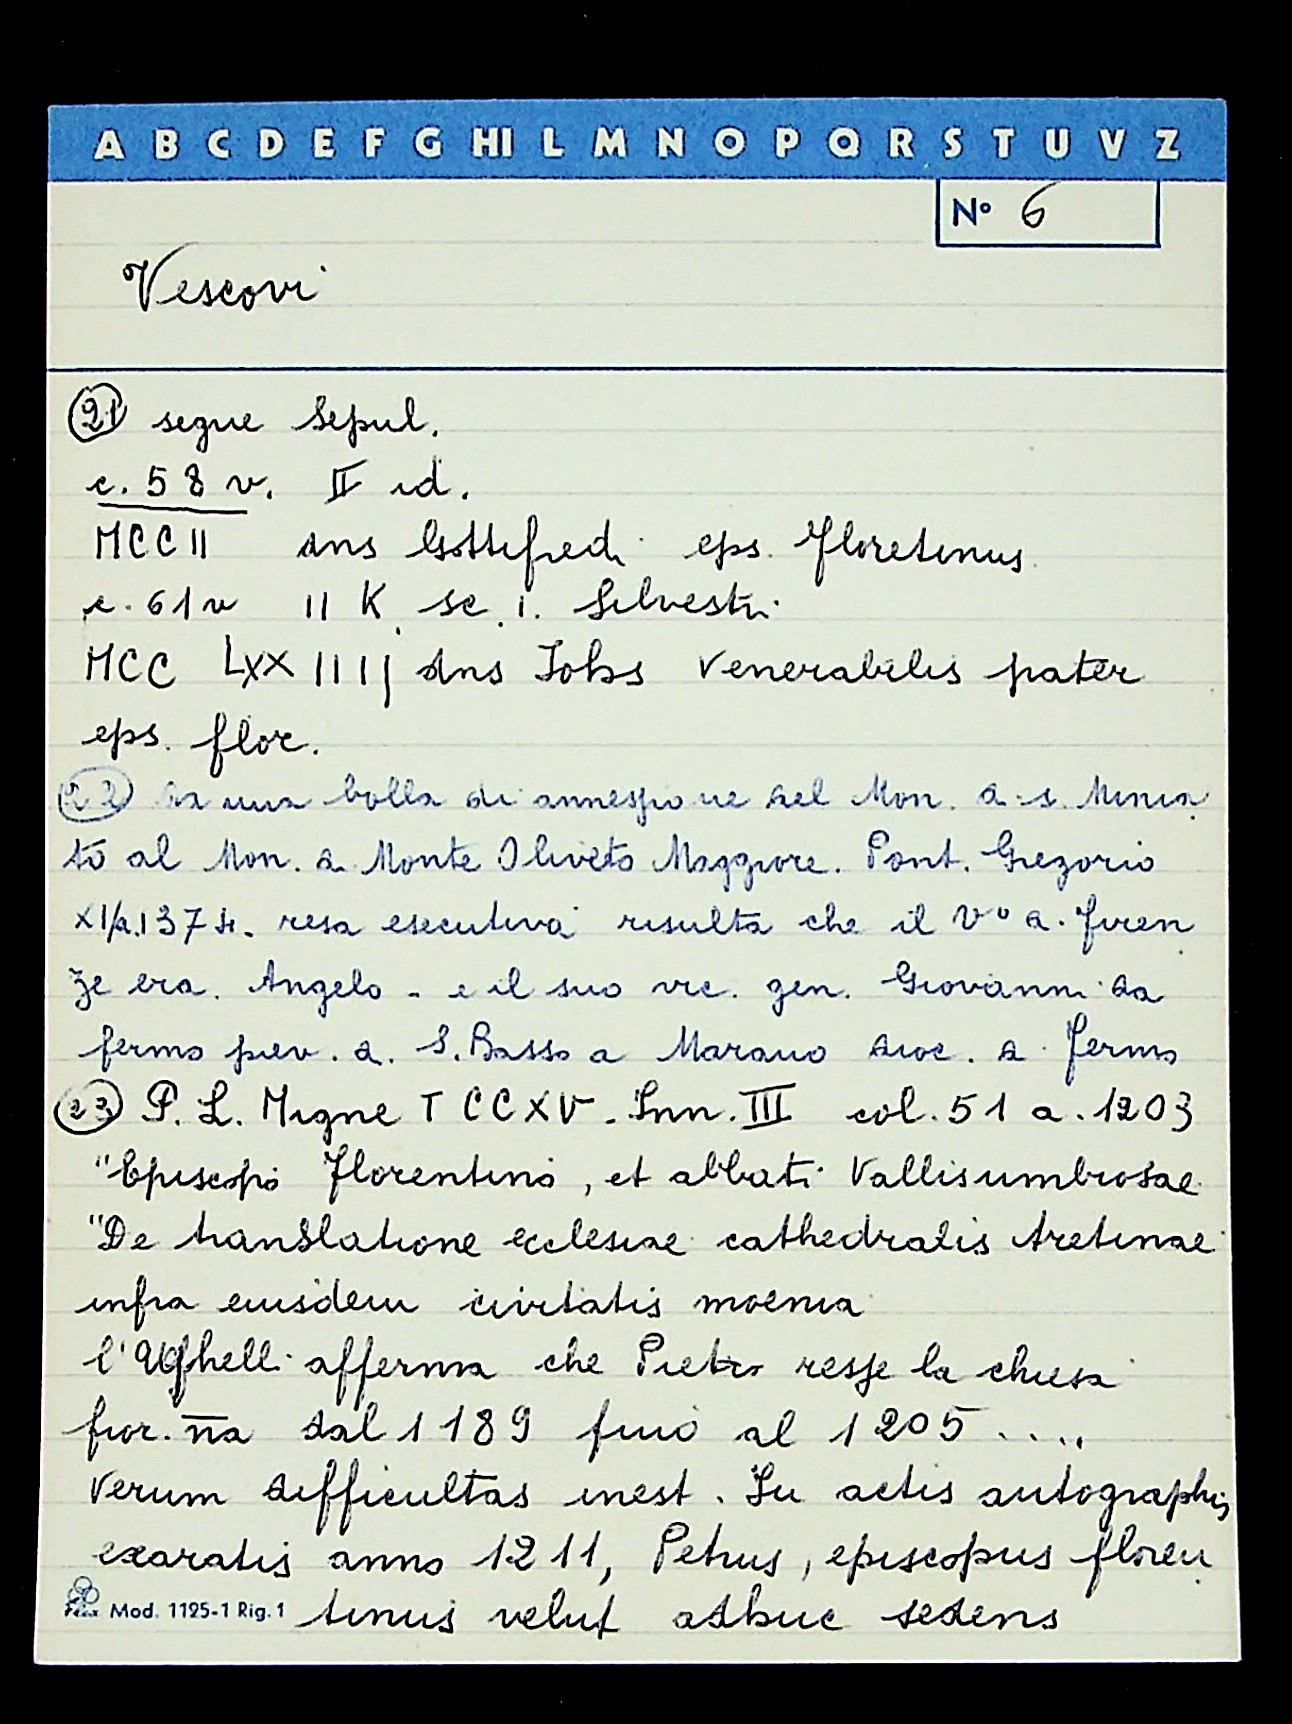 A B C D E F G HI L M N O P Q R S T U V Z
N° 6
Vescovi
21 segue Sepul.
c. 58 v. II id.
MCCII dns Gottifredi eps. Floretinus
c. 61 v II K. sc. i. Silvestri
MCC LXXIIIj dns Johs venerabilis pater
eps. flor.
22 da una bolla di annessione del Mon. d. s. Minia
to al Mon. d. Monte Oliveto Maggiore. Pont. Gregorio
XI/a.1374. resa esecutiva risulta che il V° d. Firen
ze era. Angelo - e il suo vic. gen. Giovanni da
fermo piev. d. S. Basso a Marano dioc. d. Fermo
23 P. L. Migne T CCXV - Inn. III col. 51 a. 1203
"Episcopo Florentino, et abbati Vallisumbrosae
"De translatione ecclesiae cathedralis Aretinae
infra eiusdem civitatis moenia
l'Ughelli afferma che Pietro resse la chiesa
fior.na dal 1189 fino al 1205 ....
verum difficultas inest. In actis autographis
exaratis anno 1211, Petrus, episcopus floren
tinus velut adhuc sedens
Mod. 1125-1 Rig. 1